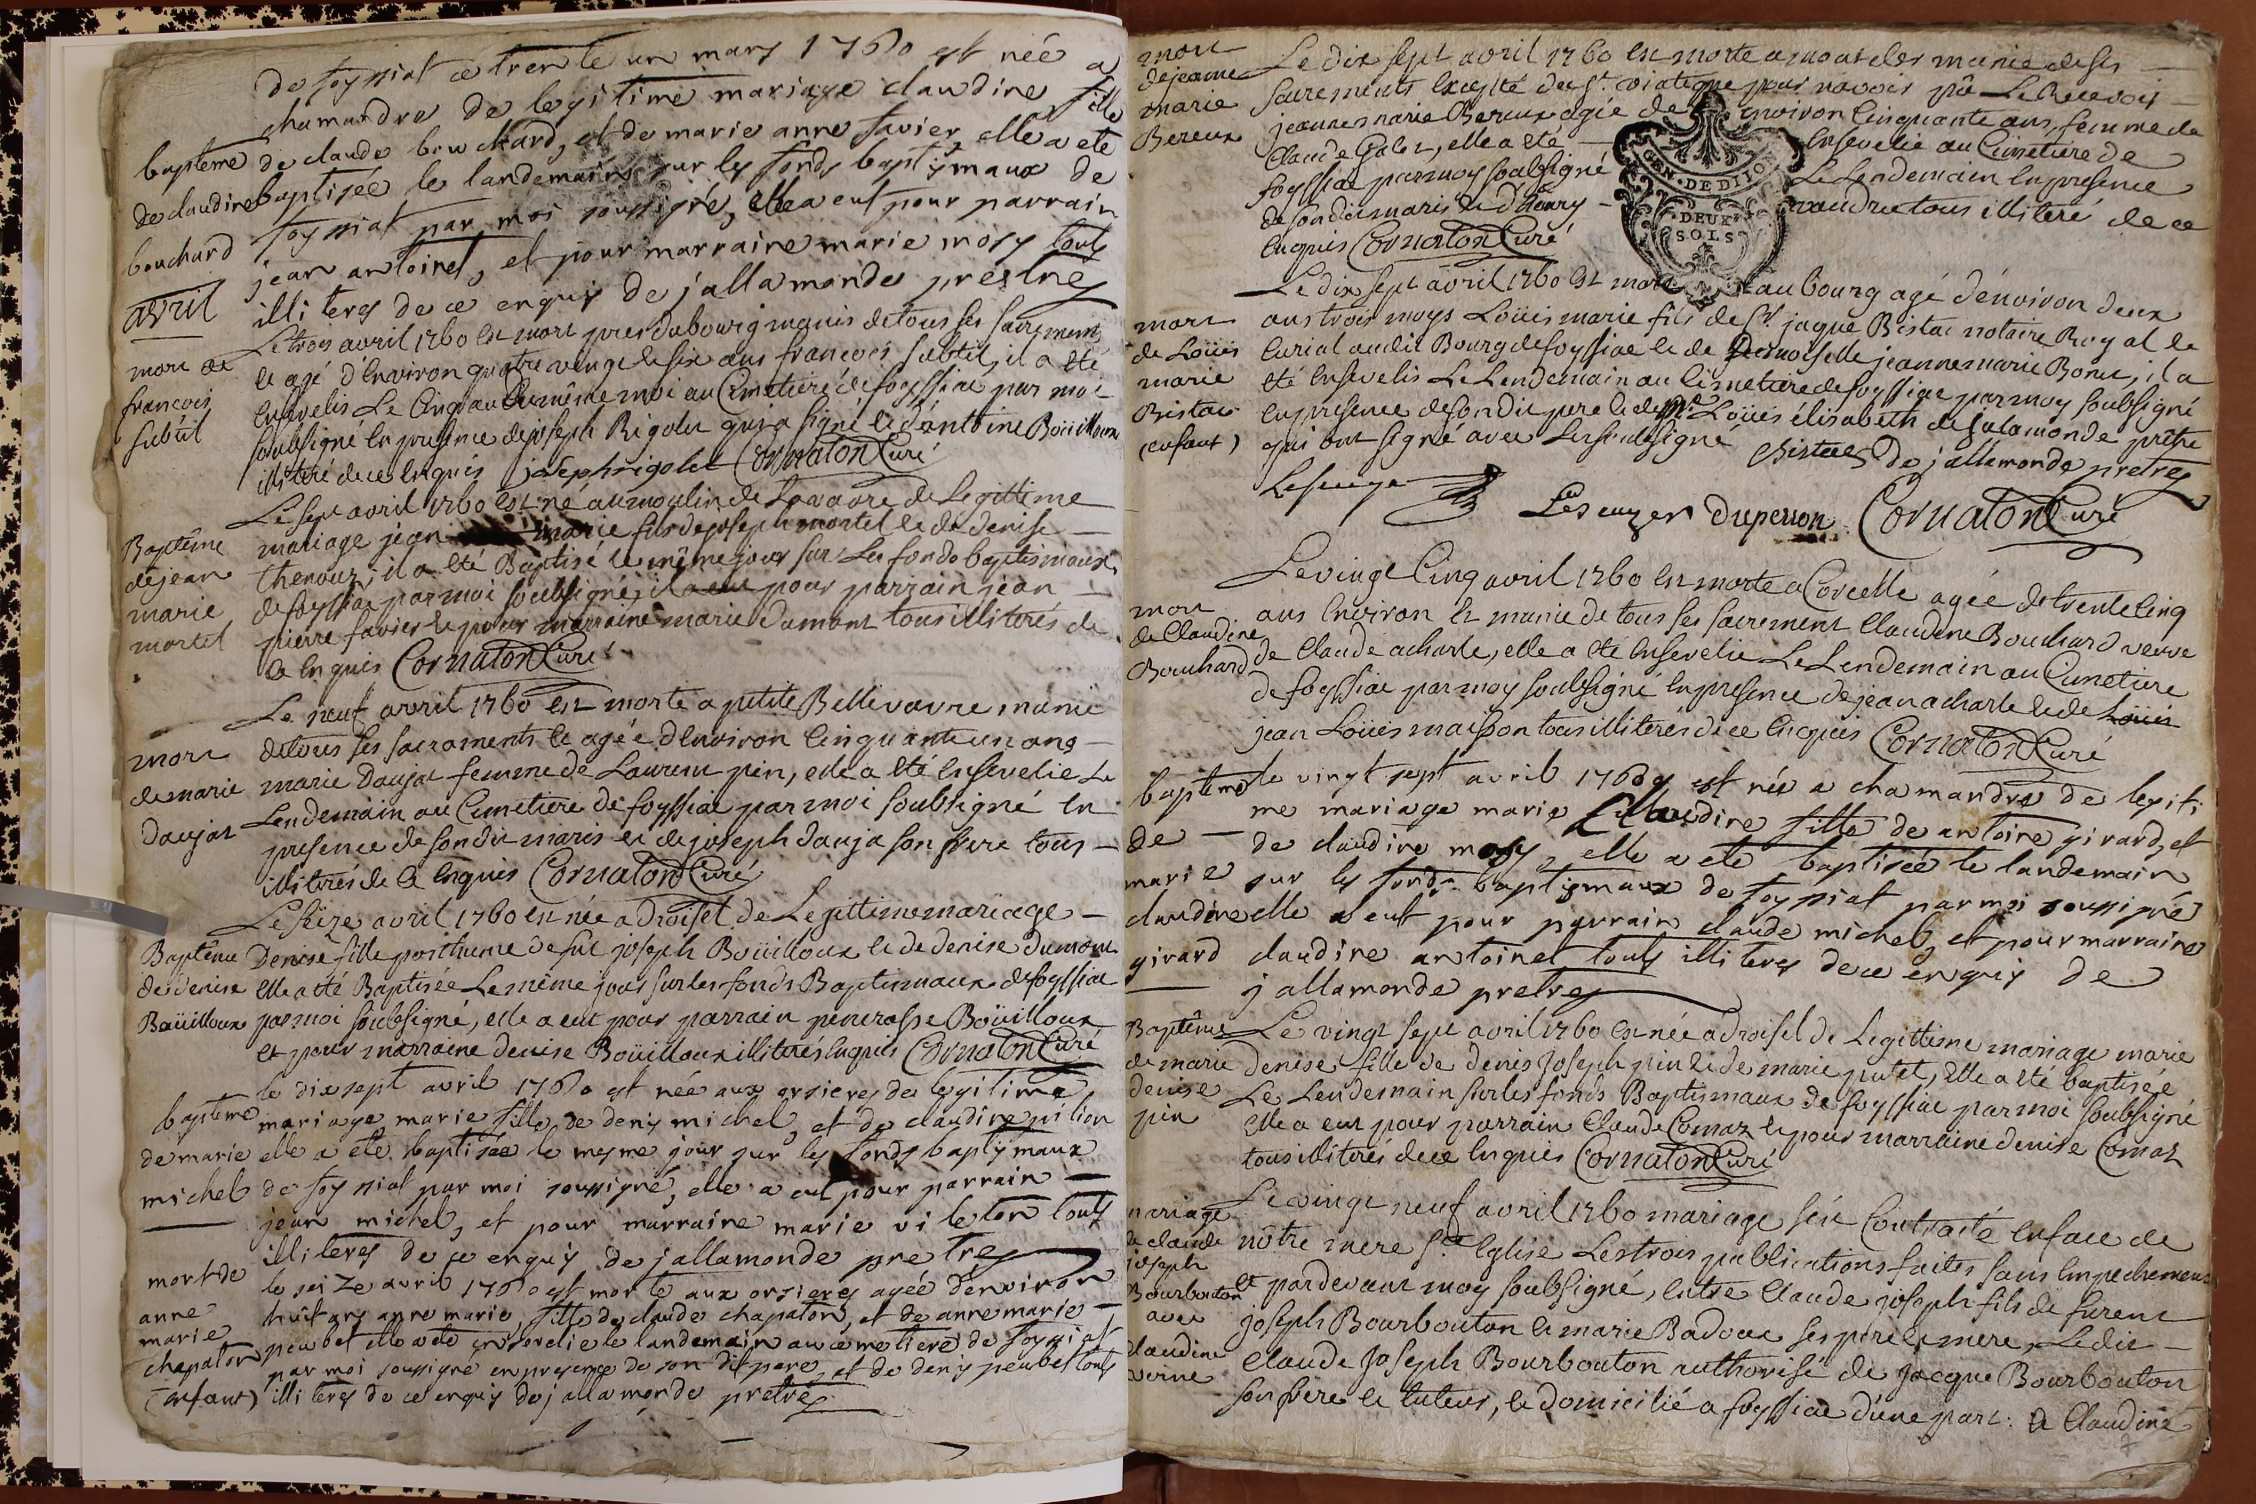 de foyssiat ce trente un mars 1760 est née a
chamandre de legitime mariage claudine fille
baptème de claude bouchard, et de marie anne favier, elle a eté
de claudine baptisée le landemain sur les fonds baptismaux de
bouchard foyssiat par moi soussigné, elle a eut pour parrain
jean antoinet, et pour marraine marie mory touts
illiteres de ce enquis de jallamonde prestre
avril
Le trois avril 1760 est mort pres du bourg munis de tous ses sacrements
mort de et agé d'Environ quatre vingt et six ans francois subtil, il a été
francois Ensevelis Le Cinq au du même moi au Cimetiere de foyssiat par moi
subtil soubsigné En presence de joseph Rigolet qui a signé et d'antoine Boüilloux
illiteré de ce Enquis josephrigolet Cornaton Curé
Le sept avril 1760 est né au moulin de Lavavre de Legittime
Baptême mariage jean marie fils de joseph mortel et de denise
de jean thenoux, il a été Baptisé le même jour sur Les fonds baptismaux
marie de foyssiat par moi soubsigné, il a eut pour parrain jean
mortel pierre favier et pour marraine marie dumont tous illiterés de
ce Enquis Cornaton Curé
Le neuf avril 1760 est morte a petite Bellevavre munie
mort de tous ses sacraments et agée d'Environ Cinquante un ans
de marie marie Daujat femme de Laurent pin, elle a été Ensevelie Le
Daujat Lendemain au Cimetiere de foyssiat par moi soubsigné En
presence de son dit maris et de joseph dauja son frere tous
illiterés de ce Enquis Cornaton Curé
Le seize avril 1760 est née a Droisel de Legittime mariage
Baptême Denise fille posthume de fût joseph Boüilloux et de denise dumont
de denise elle a été Baptisée Le même jour sur les fonds Baptismaux de foyssiat
Boüilloux par moi soubsigné, elle a eut pour parrain Boüilloux
et pour marraine denise Boüilloux illiterés Enquis Cornaton Curé
le dixsept avril 1760 est née aux orsieres de legitime
baptème mariage marie fille de denis michel, et de claudine pition
de marie elle a eté baptisée le mesme jour sur les fonds baptismaux
michel de foyssiat par moi soussigné, elle a eut pour parrain
jean michel, et pour marraine marie vileton touts
illiteres de ce enquis de jallamonde pretre
mort de le seize avril 1760 est morte aux orsieres agée denviron
anne huit ans anne marie, fille de claude chapaton, et de anne marie
marie peubet elle a eté ensevelie le landemain au cemetiere de foyssiat
chapaton par moi soussigné en presence de son dit pere, et de denis peubet touts
(enfant) illiteres de ce enquis de jallamonde pretre
mort Le dix sept avril 1760 est morte a montelier munie de ses
de jeanne sacrements Excepté du St. viatique pour n'avoir pû Le Recevoir
marie jeanne marie Bereux agée de Environ Cinquante ans, femme de
Bereux Claude Galer, elle a été Ensevelie au Cimetiere de
foyssiat par moy soubsigné Le Lendemain En presence
de son dit maris et d'henry vaudret tous illiteré de ce
Enquis Cornaton Curé
GEN. DE DIJO
DEUX
SOLS
Le dix sept avril 1760 est mort au bourg agé d'énviron deux
mort ans trois moys Loüis marie fils de Sr. jaque Bistac notaire Royal et
de Loüis Curial au dit Bourg de foyssiat et de Demoiselle jeanne marie Bonet, il a
marie été Ensevelis Le Lendemain au Cimetiere de foyssiat par moy soubsigné
Bistac en presence de son dit pere et de Mre. Loüis élisabeth de jalamonde prêtre
(enfant) qui ont signé avec Les soubsigné Bistac de jallamonde pretre
Lesuyer Lescuyer duperron Cornaton Curé
Le vingt Cinq avril 1760 est morte a Corcelle agée de trente Cinq
mort ans Environ et munie de tous ses sacrement Claudine Bouchard veuve
de Claudine
Bouchard de Claude acharle, elle a été Ensevelie Le Lendemain au Cimetiere
de foyssiat par moy soubsigné En presence de jean acharle et de Loüis
jean Loüis maisson tous illiterés de ce Enquis Cornaton Curé
baptème le vingt sept avril 1760 est née a chamandre de legiti
de me mariage marie Claudine fille de antoine girard, et
marie de claudine mory, elle a eté baptisée le landemain
claudine sur les fonds baptismaux de foyssiat par moi soussigné
girard elle a eut pour parrain claude michel, et pour marraine
claudine antoinet touts illiteres de ce enquis de
jallamonde pretre
Baptême Le vingt sept avril 1760 est née a droisel de Legittime mariage marie
de marie denise fille de denis Joseph pin et de marie putet, Elle a été baptisée
denise Le Lendemain sur les fonds Baptismaux de foyssiat par moi soubsigné
pin Elle a eut pour parrain Claude Comaz et pour marraine denise Comaz
tous illiterés de ce Enquis Cornaton Curé
mariage Le vingt neuf avril 1760 mariage fût Contracté En face de
de claude nôtre mere Ste Eglise Les trois publications faites sans Empechement
joseph
Bourbouton et pardevant moy soubsigné, Entre Claude joseph fils de furent
avec joseph Bourbouton et marie Badoux ses pere et mere, Le dit
claudine Claude Joseph Bourbouton authorisé de Jacque Bourbouton
verne son frere et tuteur, et domicilié a foyssiat d'une part: Et Claudine